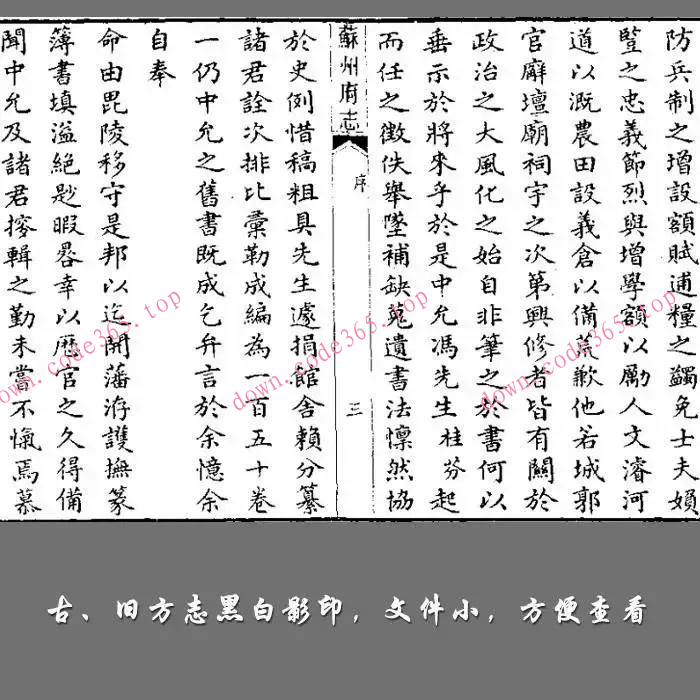 防兵制之增設額賦逋糧之蠲免士夫嬪
暨之忠義節烈與增學額以勵人文濬河
道以溉農田設義倉以備荒歉他若城郭
官廨壇廟祠宇之次第興修者皆有關於
政治之大風化之始自非筆之於書何以
垂示於將來乎於是中允馮先生桂芬起
而任之徵佚舉墜補缺蒐遺書法懍然協
蘇州府志
序
三
於史例惜稿粗具先生遽捐館舍賴分纂
諸君詮次排比彙勒成編為一百五十卷
一仍中允之舊書既成乞弁言於余憶余
自奉
命由毘陵移守是邦以迄開藩洊護撫篆
簿書填溢絕尟暇晷幸以歷官之久得備
聞中允及諸君搜輯之勤未嘗不愾焉慕
down.code365.top
down.code365.top
古、旧方志黑白影印，文件小，方便查看